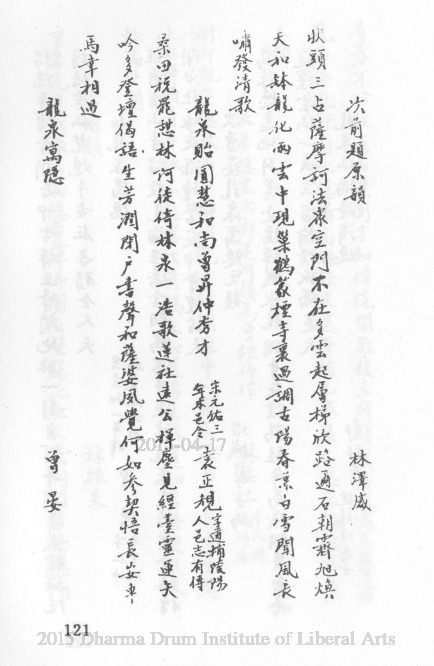 次前題原韻　林澤威
狀頭三占薩摩訶法嚴空門不在多雲起層梯欣路通石朝霽旭煥
天和缽龍化雨雲中現巢鶴蒙煙寺裏過調古陽春兼白雪聞風長
嘯發清歌
龍泉貽圓慧和尚曾昇仲秀才
宋元祐三年本邑令袁正規字道輔陵陽人邑志有傳
桑田税罷憩林阿徒倚林泉一浩歌蓮社遠公禪塵見經臺靈運夫
吟多登壇偈語生芳潤閉戶書聲和薩婆風覺何如參契悟長安車
馬幸相過
龍泉寓隱　曾晏
2015-04-17
121
2015 Dharma Drum Institute of Liberal Arts